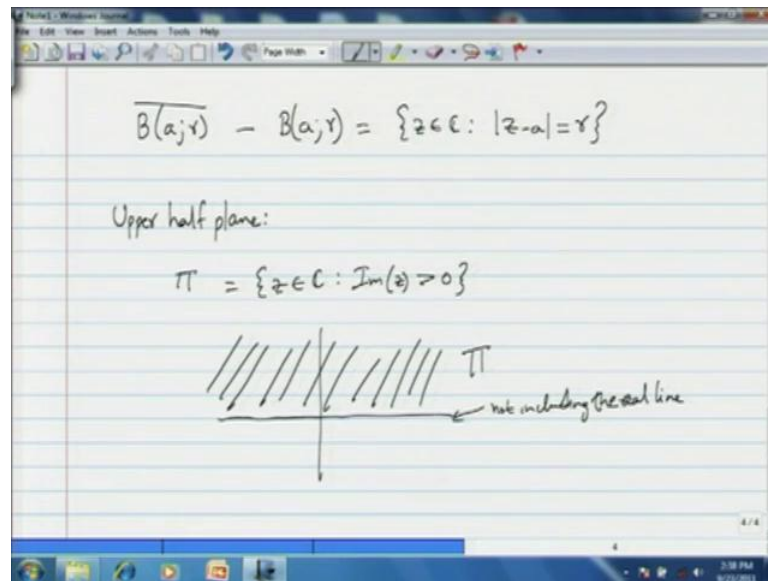 Note1 - Windows Journal
File Edit View Insert Actions Tools Help
Page Width
\overline{B(a;r)} - B(a;r) = {z∈ℂ : |z-a|=r}
Upper half plane:
Π = {z∈ℂ : Im(z) > 0}
Π
not including the real line
4/4
4
2:38 PM